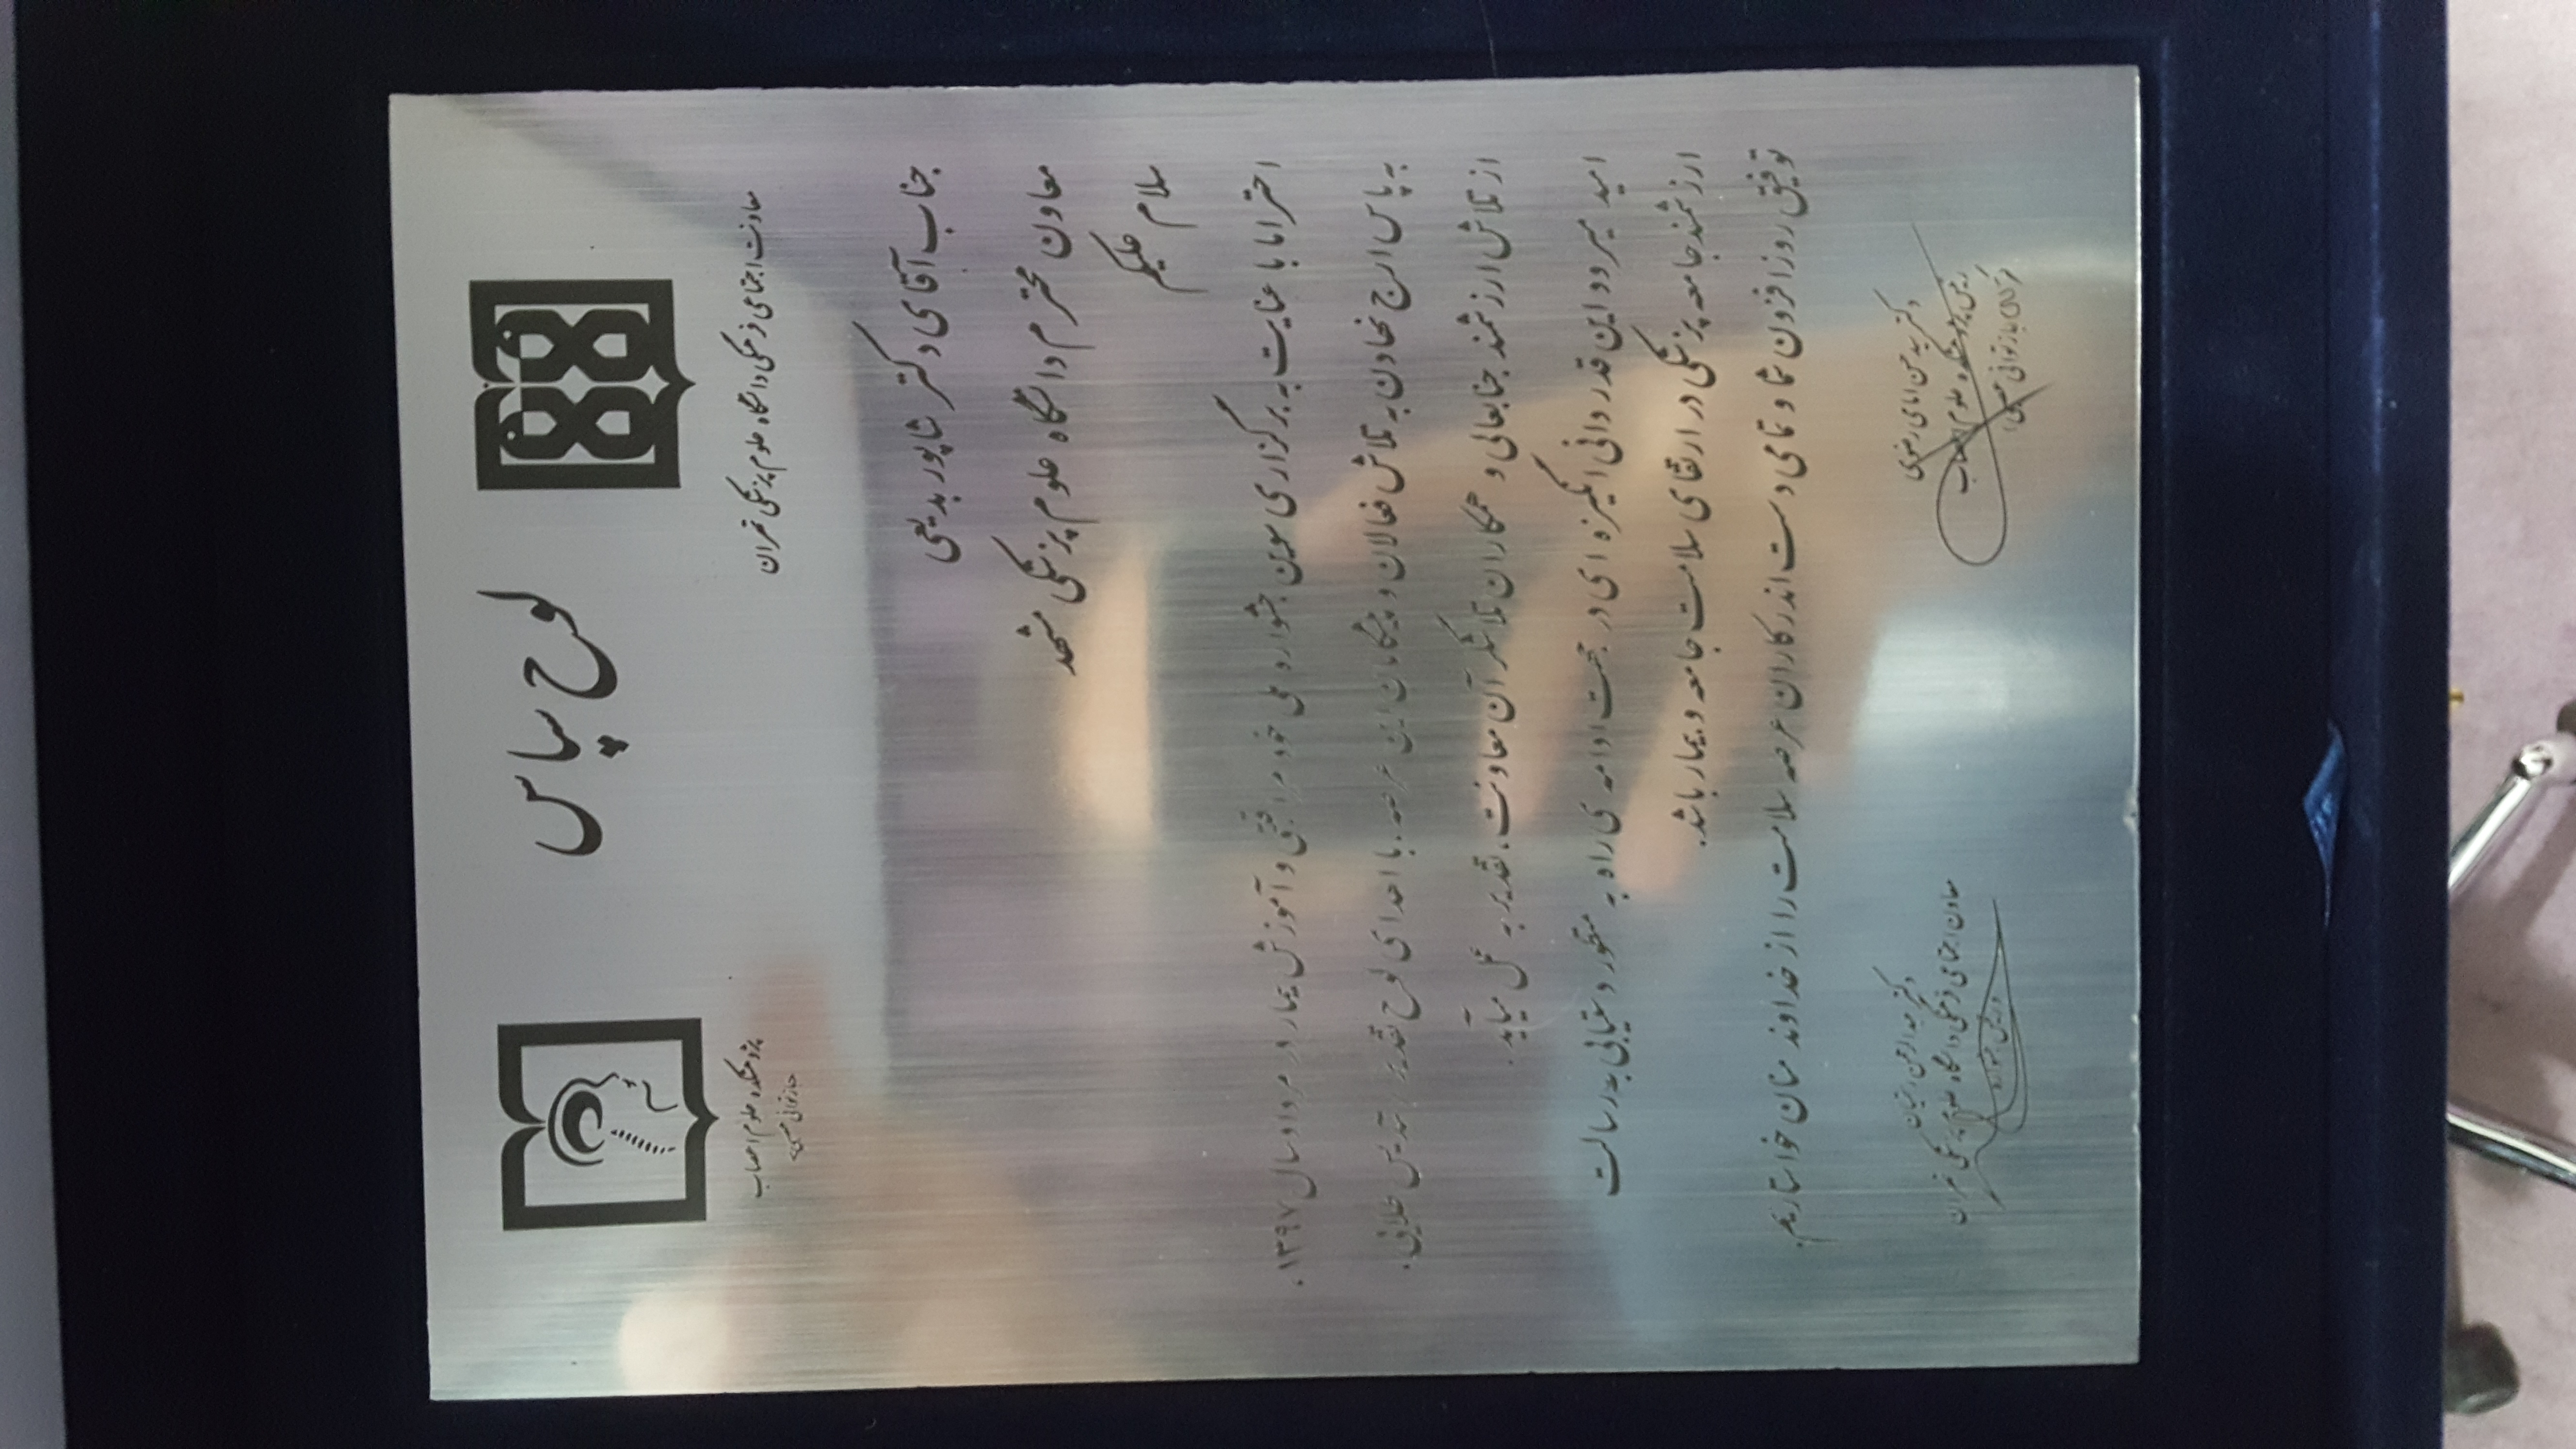 لوح سپاس
معاونت اجتماعی فرهنگی دانشگاه علوم پزشکی تهران
پژوهشکده علوم اعصاب
جناب آقای دکتر شاپور بدیعی
معاون محترم دانشگاه علوم پزشکی مشهد
سلام علیکم
احتراما با عنایت به برگزاری سومین جشنواره ملی خود مراقبتی و آموزش بیمار در مرداد سال ۱۳۹۷.
به پاس ارج نهادن به تلاش فعالان و پیشگامان این عرصه، با اهدای لوح تقدیر، تندیس طلایی،
از تلاش ارزشمند جنابعالی و همکاران تلاشگر آن معاونت، تقدیر به عمل میآید.
امید میرود این قدردانی انگیزه ای در جهت ادامه ی راه به منظور دستیابی به رسالت
ارزشمند جامعه پزشکی در ارتقای سلامت جامعه و بیمار باشد.
توفیق روز افزون شما و تمامی دست اندرکاران عرصه سلامت را از خداوند منان خواستاریم.
دکتر سید حسن امامی رضوی
رئیس پژوهشکده علوم اعصاب
دکتر عبدالرحمن رستمیان
معاون اجتماعی فرهنگی دانشگاه علوم پزشکی تهران